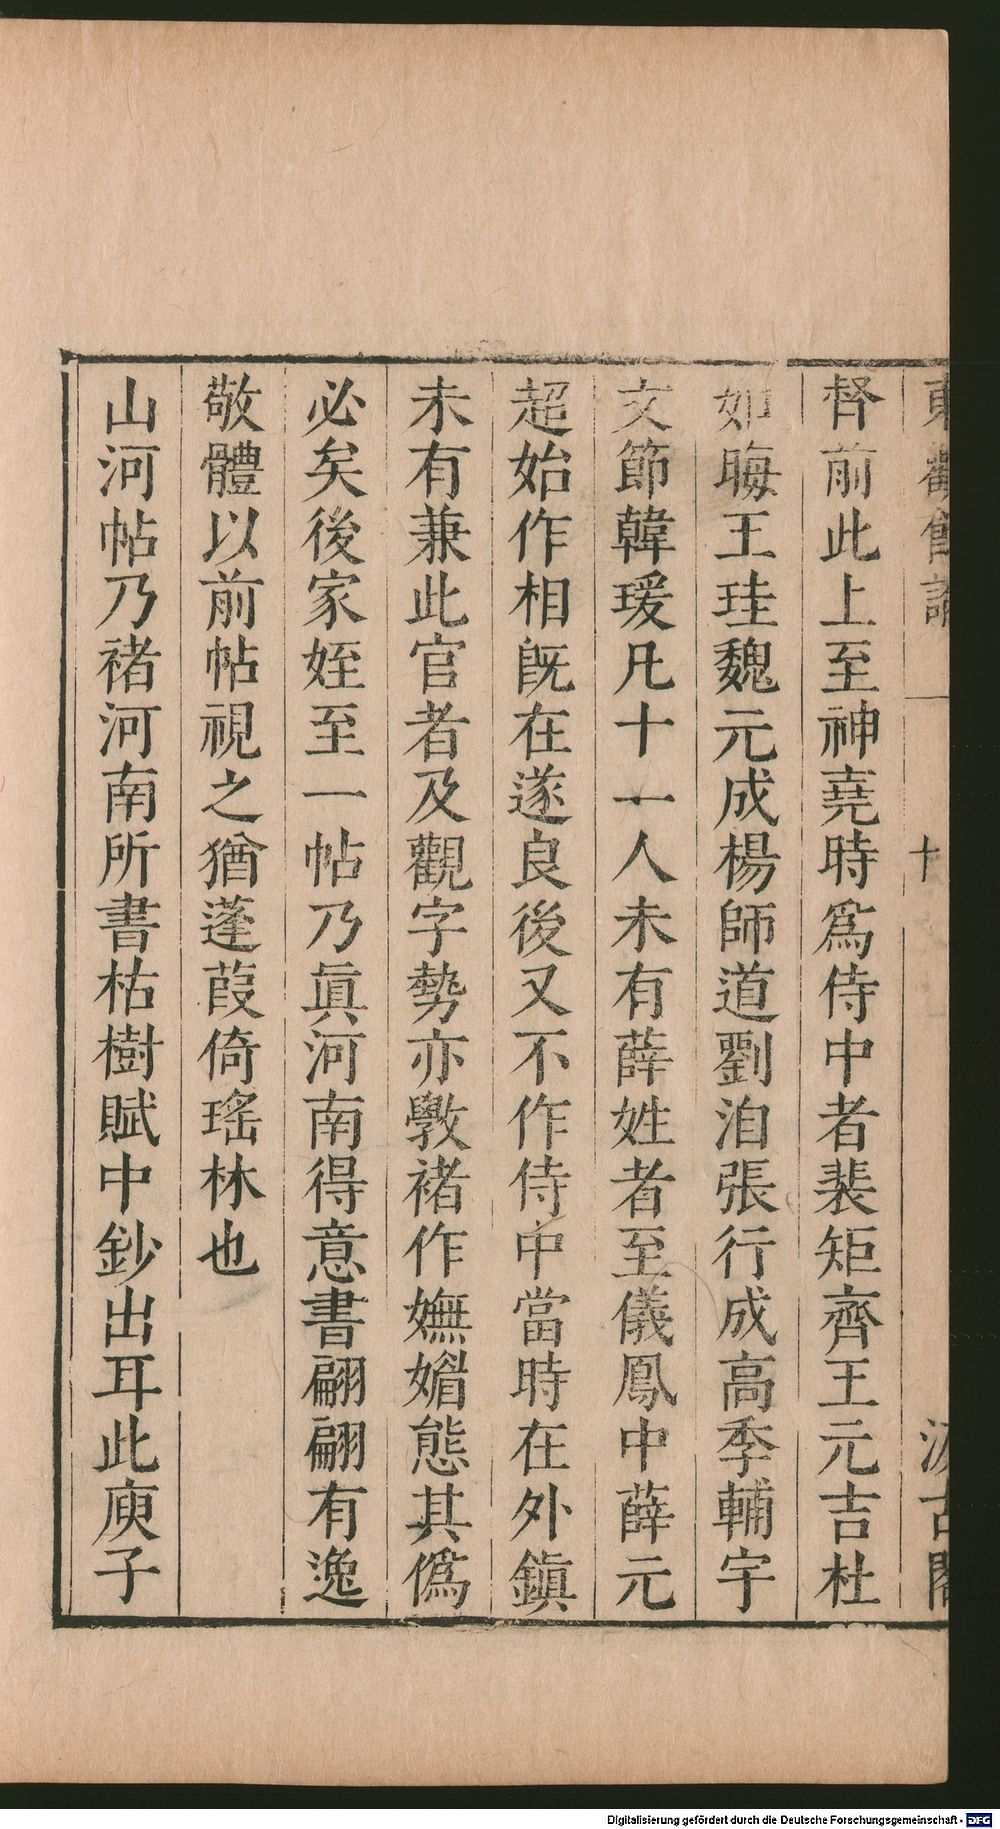 東觀餘論
一
十
汲古閣
督前此上至神堯時爲侍中者裴矩齊王元吉杜
如晦王珪魏元成楊師道劉洎張行成高季輔宇
文節韓瑗凡十一人未有薛姓者至儀鳳中薛元
超始作相旣在遂良後又不作侍中當時在外鎮
未有兼此官者及觀字勢亦斆褚作嫵媚態其僞
必矣後家姪至一帖乃眞河南得意書翩翩有逸
敬體以前帖視之猶蓬葭倚瑤林也
山河帖乃褚河南所書枯樹賦中鈔出耳此庾子
Digitalisierung gefördert durch die Deutsche Forschungsgemeinschaft - DFG